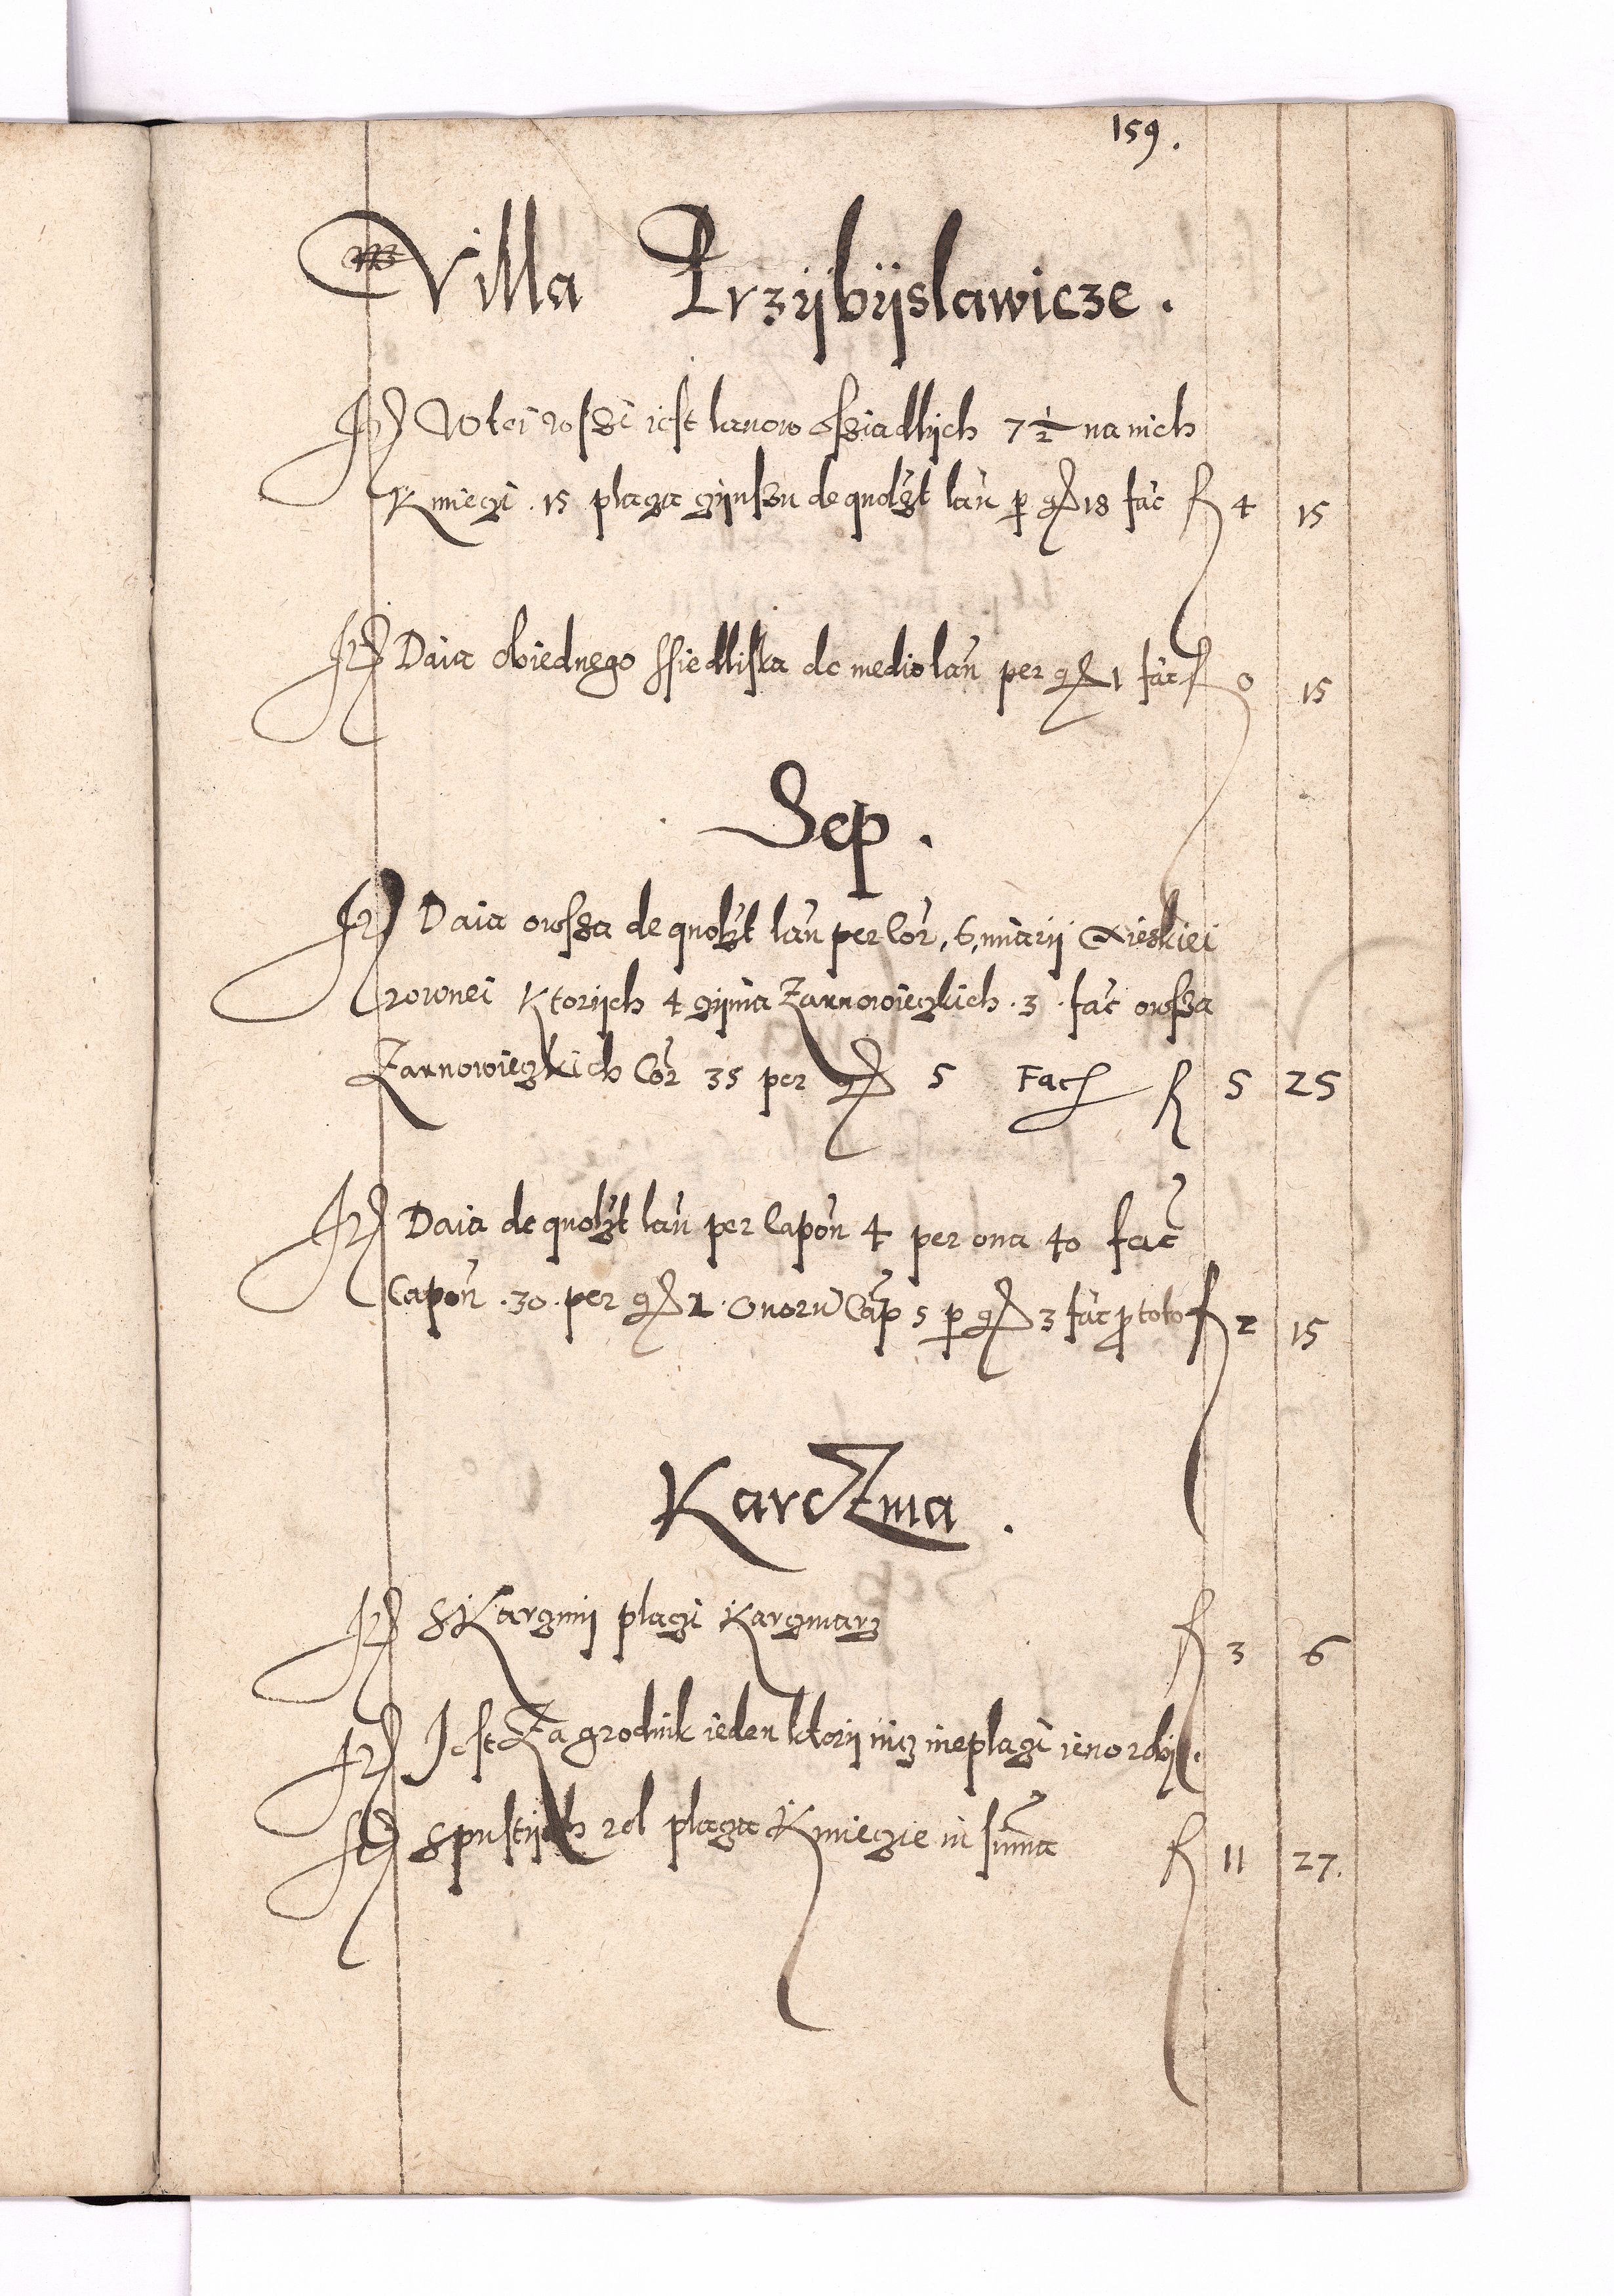 159.
Villa Przÿbÿslawicze.
It Wtei wsszi iest lanow osziadlÿch 7 1/2 na nich
Kmieczi. 15 placza czÿnszu de quolzt lan̄ p gr 18 fac̄ fl 4 15
It Daia obiednego ssiedliska de medio lan̄ per gr 1 fac̄ fl 0 15
Sep.
It Daia owssa de quolzt lan̄ per Cor̄. 6. miarÿ
rownei Ktorÿch 4 czÿnia Zarnowieczkich. 3. fac̄ owssa
Zarnowieczkich Cor̄ 35 per gr 5 Fac fl 5 25
It Daia de quolzt lan̄ per Capon̄ 4 per oua 40 fac̄
Capon̄. 30. per gr 2. Ouoru Cap̄ 5 p gr 3 fac̄ p toto fl 2 15
KarcZma.
It SKarczmÿ placzi Karczmarz fl 3 6
It Jest Zagrodnik ieden ktorÿ nicz nieplaczi ieno robÿ.
It Spustÿch rol placza Kmieczie in sum̄a fl 11 27.